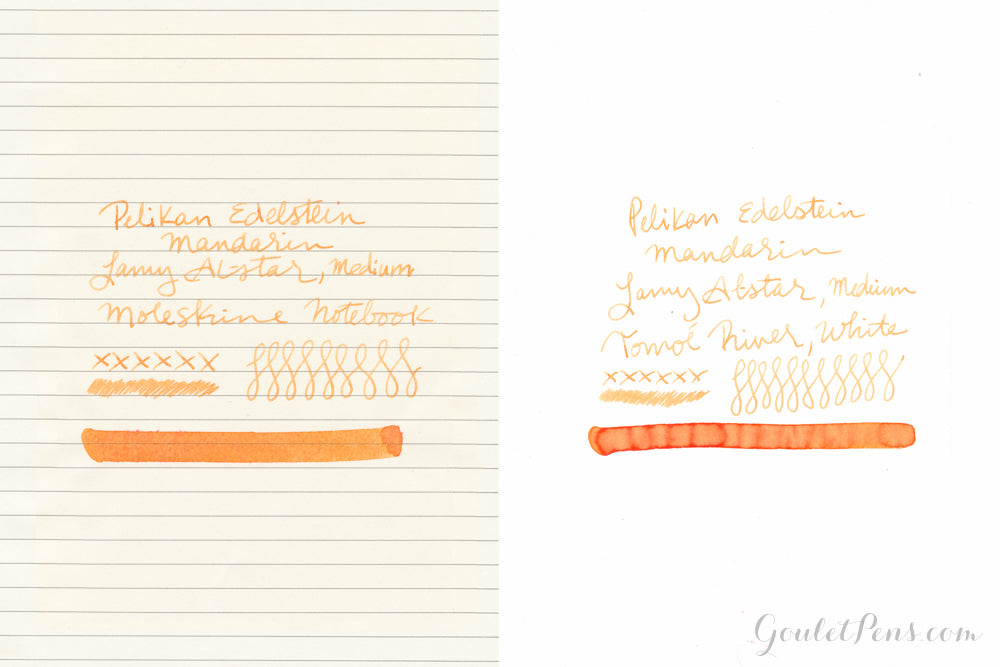 Pelikan Edelstein
Mandarin
Lamy Al-star, Medium
Moleskine Notebook
xxxxxx
Pelikan Edelstein
Mandarin
Lamy Al-star, Medium
Tomoé River, White
xxxxxx
GouletPens.com